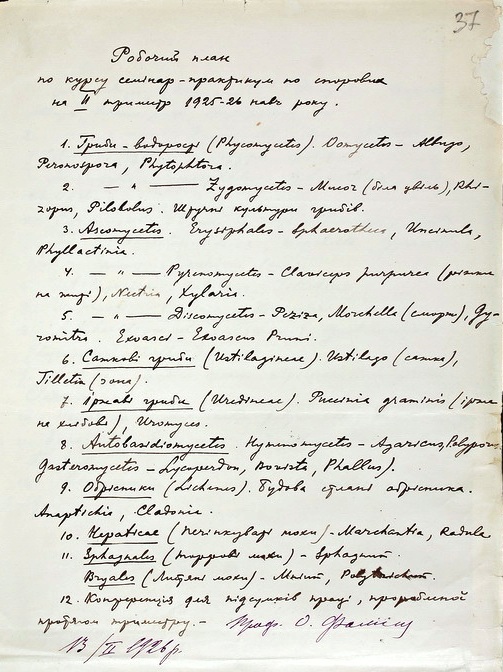 37
Робочий план
по курсу семінар-практикум по споровим
на II триместр 1925-26 навч року.
1. Гриби-водорості (Phycomycetes). Oomycetes - Albugo,
Peronospora, Phytophtora.
2. — „ — Zygomycetes - Mucor (біла цвіль), Rhi-
zopus, Pilobolus. Штучні культури грибів.
3. Ascomycetes. Erysiphales - Sphaerotheca, Uncinula,
Phyllactinia.
4. — „ — Pyrenomycetes - Claviceps purpurea (ріжки
на житі), Nectria, Xylaria.
5. — „ — Discomycetes - Peziza, Morchella (сморж), Gy-
romitra. Exoasci - Exoascus Pruni.
6. Сажкові гриби (Ustilagineae). Ustilago (сажка),
Tilletia (зона).
7. Іржаві гриби (Uredineae). Puccinia graminis (іржа
на хлібові), Uromyces.
8. Autobasidiomycetes. Hymenomycetes - Agaricus, Polyporus
Gasteromycetes - Lycoperdon, Bovista, Phallus).
9. Обрісники (Lichenes). Будова слані обрісника.
Anaptichia, Cladonia.
10. Hepaticae (Печінкуваті мохи) - Marchantia, Radula
11. Sphagnales (торфові мохи) - Sphagnum.
Bryales (Листяні мохи) - Mnium, Polytrichum.
12. Конференція для підсумків праці, проробленої
протягом триместру. -
Проф. О. Фомін
13/II 1926 р.